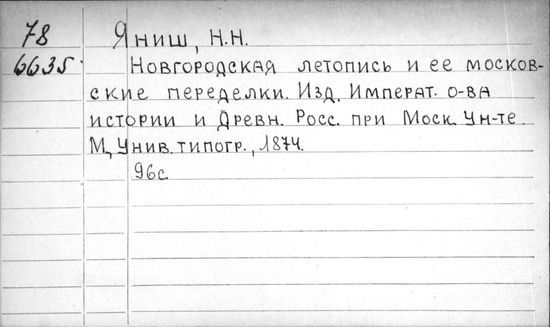 78 Яниш, Н.Н.
6635 Новгородская летопись и ее москов-
ские переделки. Изд. Императ. о-ва
истории и Древн. Росс. при Моск. Ун-те.
М., Унив. типогр., 1874.
96с.